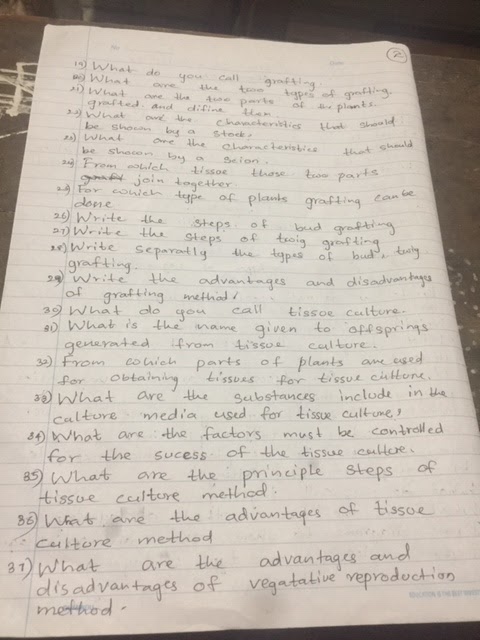 No
Date
2
19) What do you call grafting.
20) What are the two types of grafting.
21) What are the two parts of the plants.
grafted. and difine them.
22) What are the characteristics that should
be shown by a stock.
23) What are the characteristics that should
be shown by a scion.
24) From which tissue those two parts
join together.
25) For which type of plants grafting can be
done
26) Write the steps of bud grafting
27) Write the steps of twig grafting
28) Write separatly the types of bud, twig
grafting.
29) Write the advantages and disadvantages
of grafting method.
30) What do you call tissue culture.
31) What is the name given to offsprings
generated from tissue culture.
32) From which parts of plants are used
for obtaining tissues for tissue culture.
33) What are the substances include in the
culture media used for tissue culture?
34) What are the factors must be controlled
for the sucess of the tissue culture.
35) What are the principle steps of
tissue culture method.
36) What are the advantages of tissue
culture method
37) What are the advantages and
disadvantages of vegatative reproduction
method.